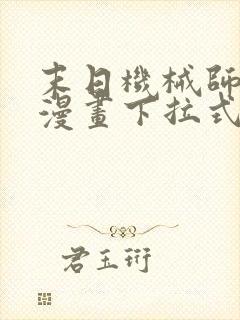 末日機械師
漫畫下拉式
君玉珩